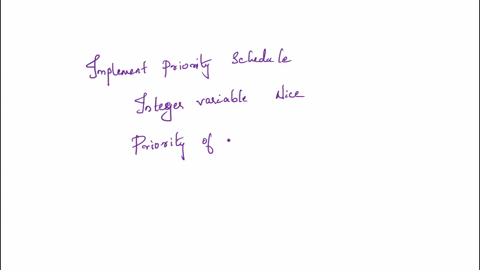 Implement Priority Schedule
Integer variable Nice
Priority of